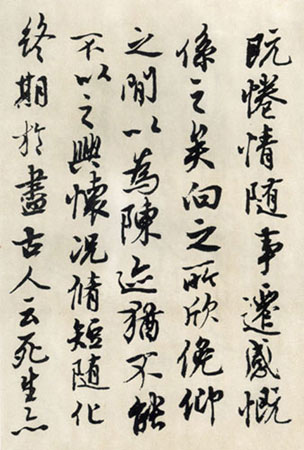 既惓情随事遷感慨
係之矣向之所欣俛仰
之間以為陳迹猶不能
不以之興懷况脩短随化
終期於盡古人云死生亦